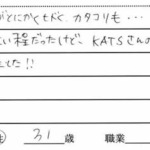 がとにかく よく、カタコリも・・・
い程だったけど、KATSさんの
てた!!
性 31 歳 職業